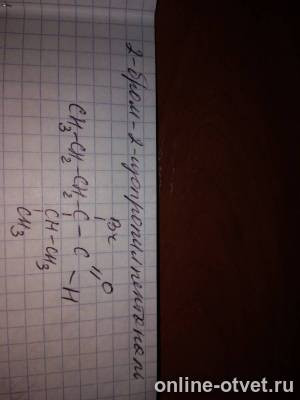 2-бром-2-изопропилпентаналь
Br O
CH3-CH2-CH2-C-C-H
CH-CH3
CH3
online-otvet.ru